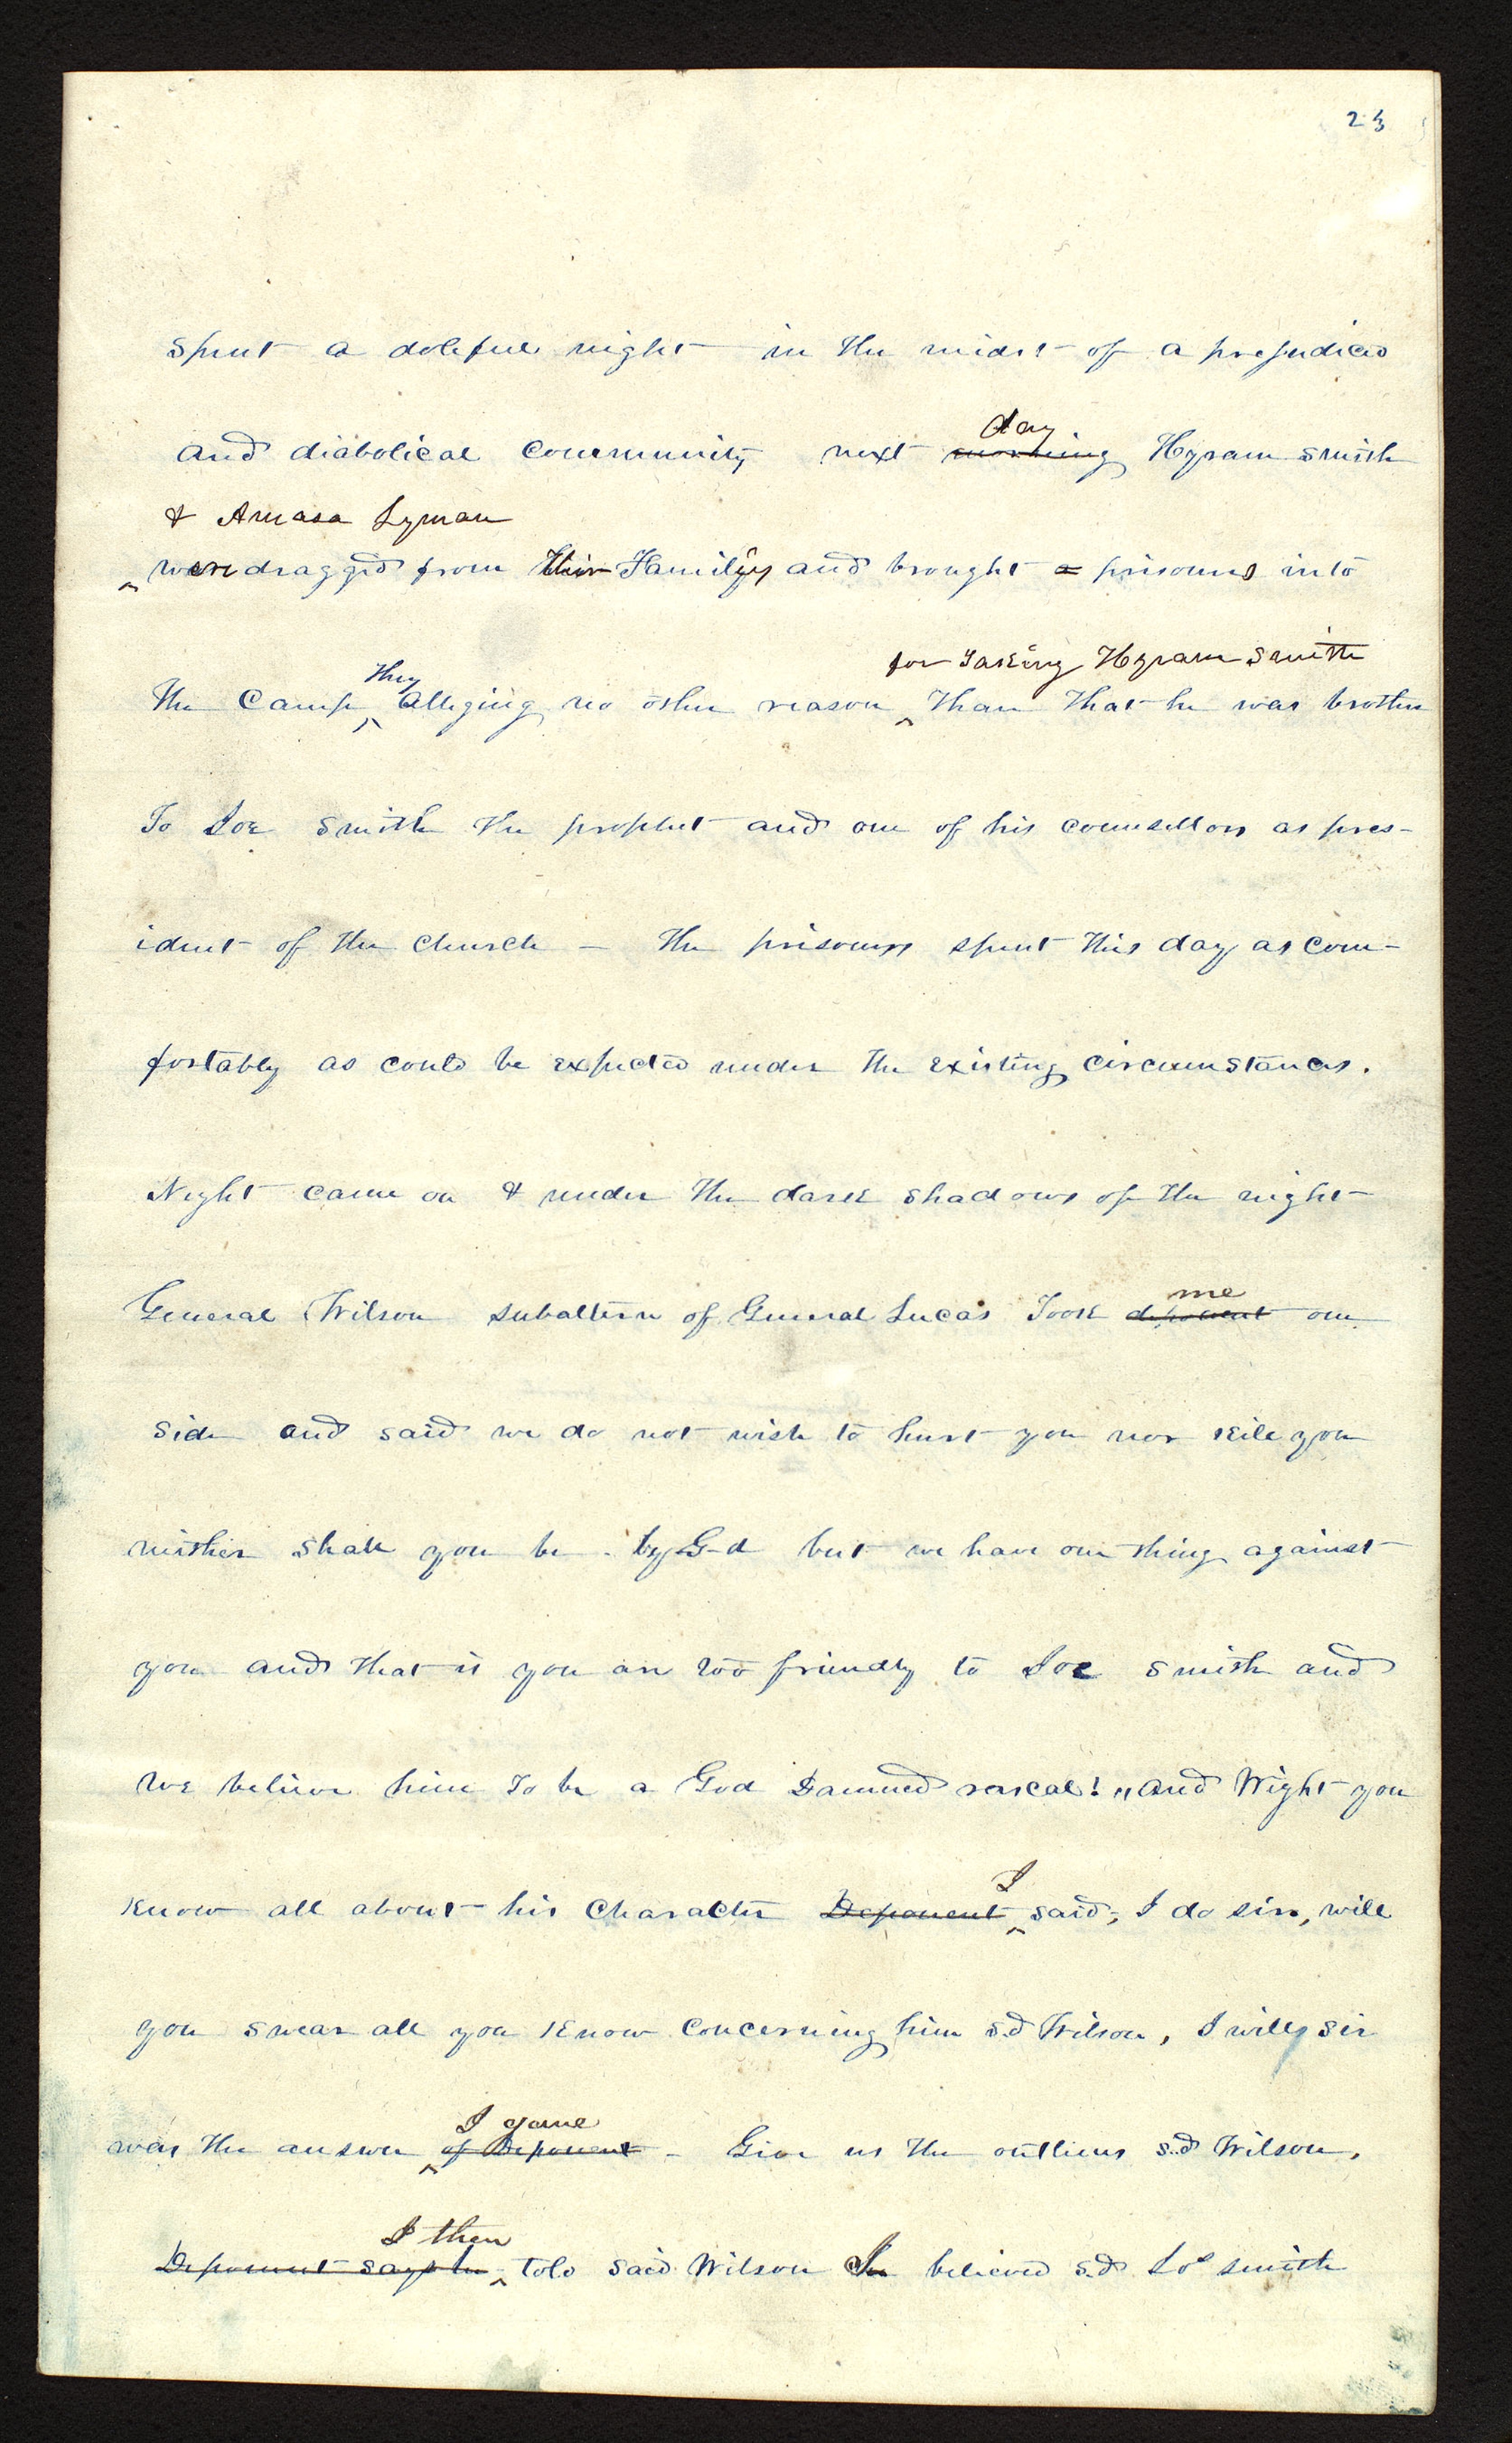 23
spent a doleful night in the midst of a prejudiced
day
and diabolical community next morning Hyram Smith
& Amasa Lyman
were dragged from their Familyies and brought a prisoners into
for Taking Hyram Smith
They
the Camp Alleging no other reason Than that he was brother
To Joe Smith the prophet and one of his counsellors as pres-
ident of the church – the prisoners spent this day as com-
fortably as could be expected under the existing circumstances.
Night came on & under the dark shadows of the night
me
General Wilson subaltern of General Lucas Took deponent one
side and said we do not wish to hurt you nor kill you
neither shall you be by G-d but we have one thing against
you and that is you are too friendly to Joe Smith and
we believe him To be a God Damned rascal! " and Wight you
I
know all about his Character Deponent said; I do sir, will
you swear all you know concerning him sd Wilson, I will, sir
I gave
was the answer of Deponent – Give us the outlines sd Wilson,
I then
Deponent says he told said Wilson I believed sd Joe Smith